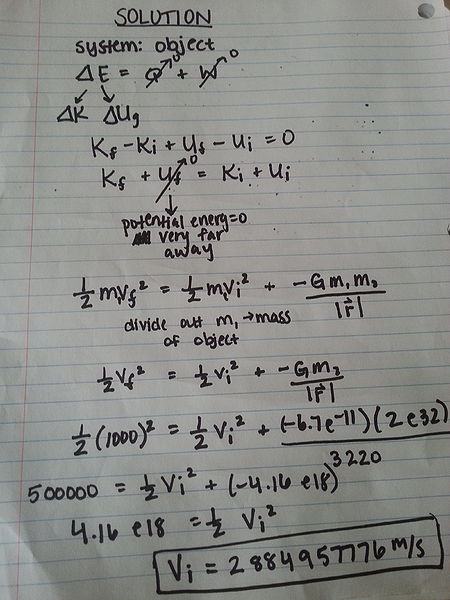 SOLUTION
system: object
ΔE = Q⁰ + W⁰
ΔK ΔUg
Kf - Ki + Uf - Ui = 0
Kf + Uf⁰ = Ki + Ui
potential energy=0
very far
away
½ m₁Vf² = ½ m₁Vi² + -Gm₁m₂/|r⃗|
divide out m₁ → mass
of object
½ Vf² = ½ Vi² + -Gm₂/|r⃗|
½ (1000)² = ½ Vi² + (-6.7e⁻¹¹)(2e32)/3220
500000 = ½ Vi² + (-4.16 e18)
4.16 e18 = ½ Vi²
Vi = 2884957776 m/s